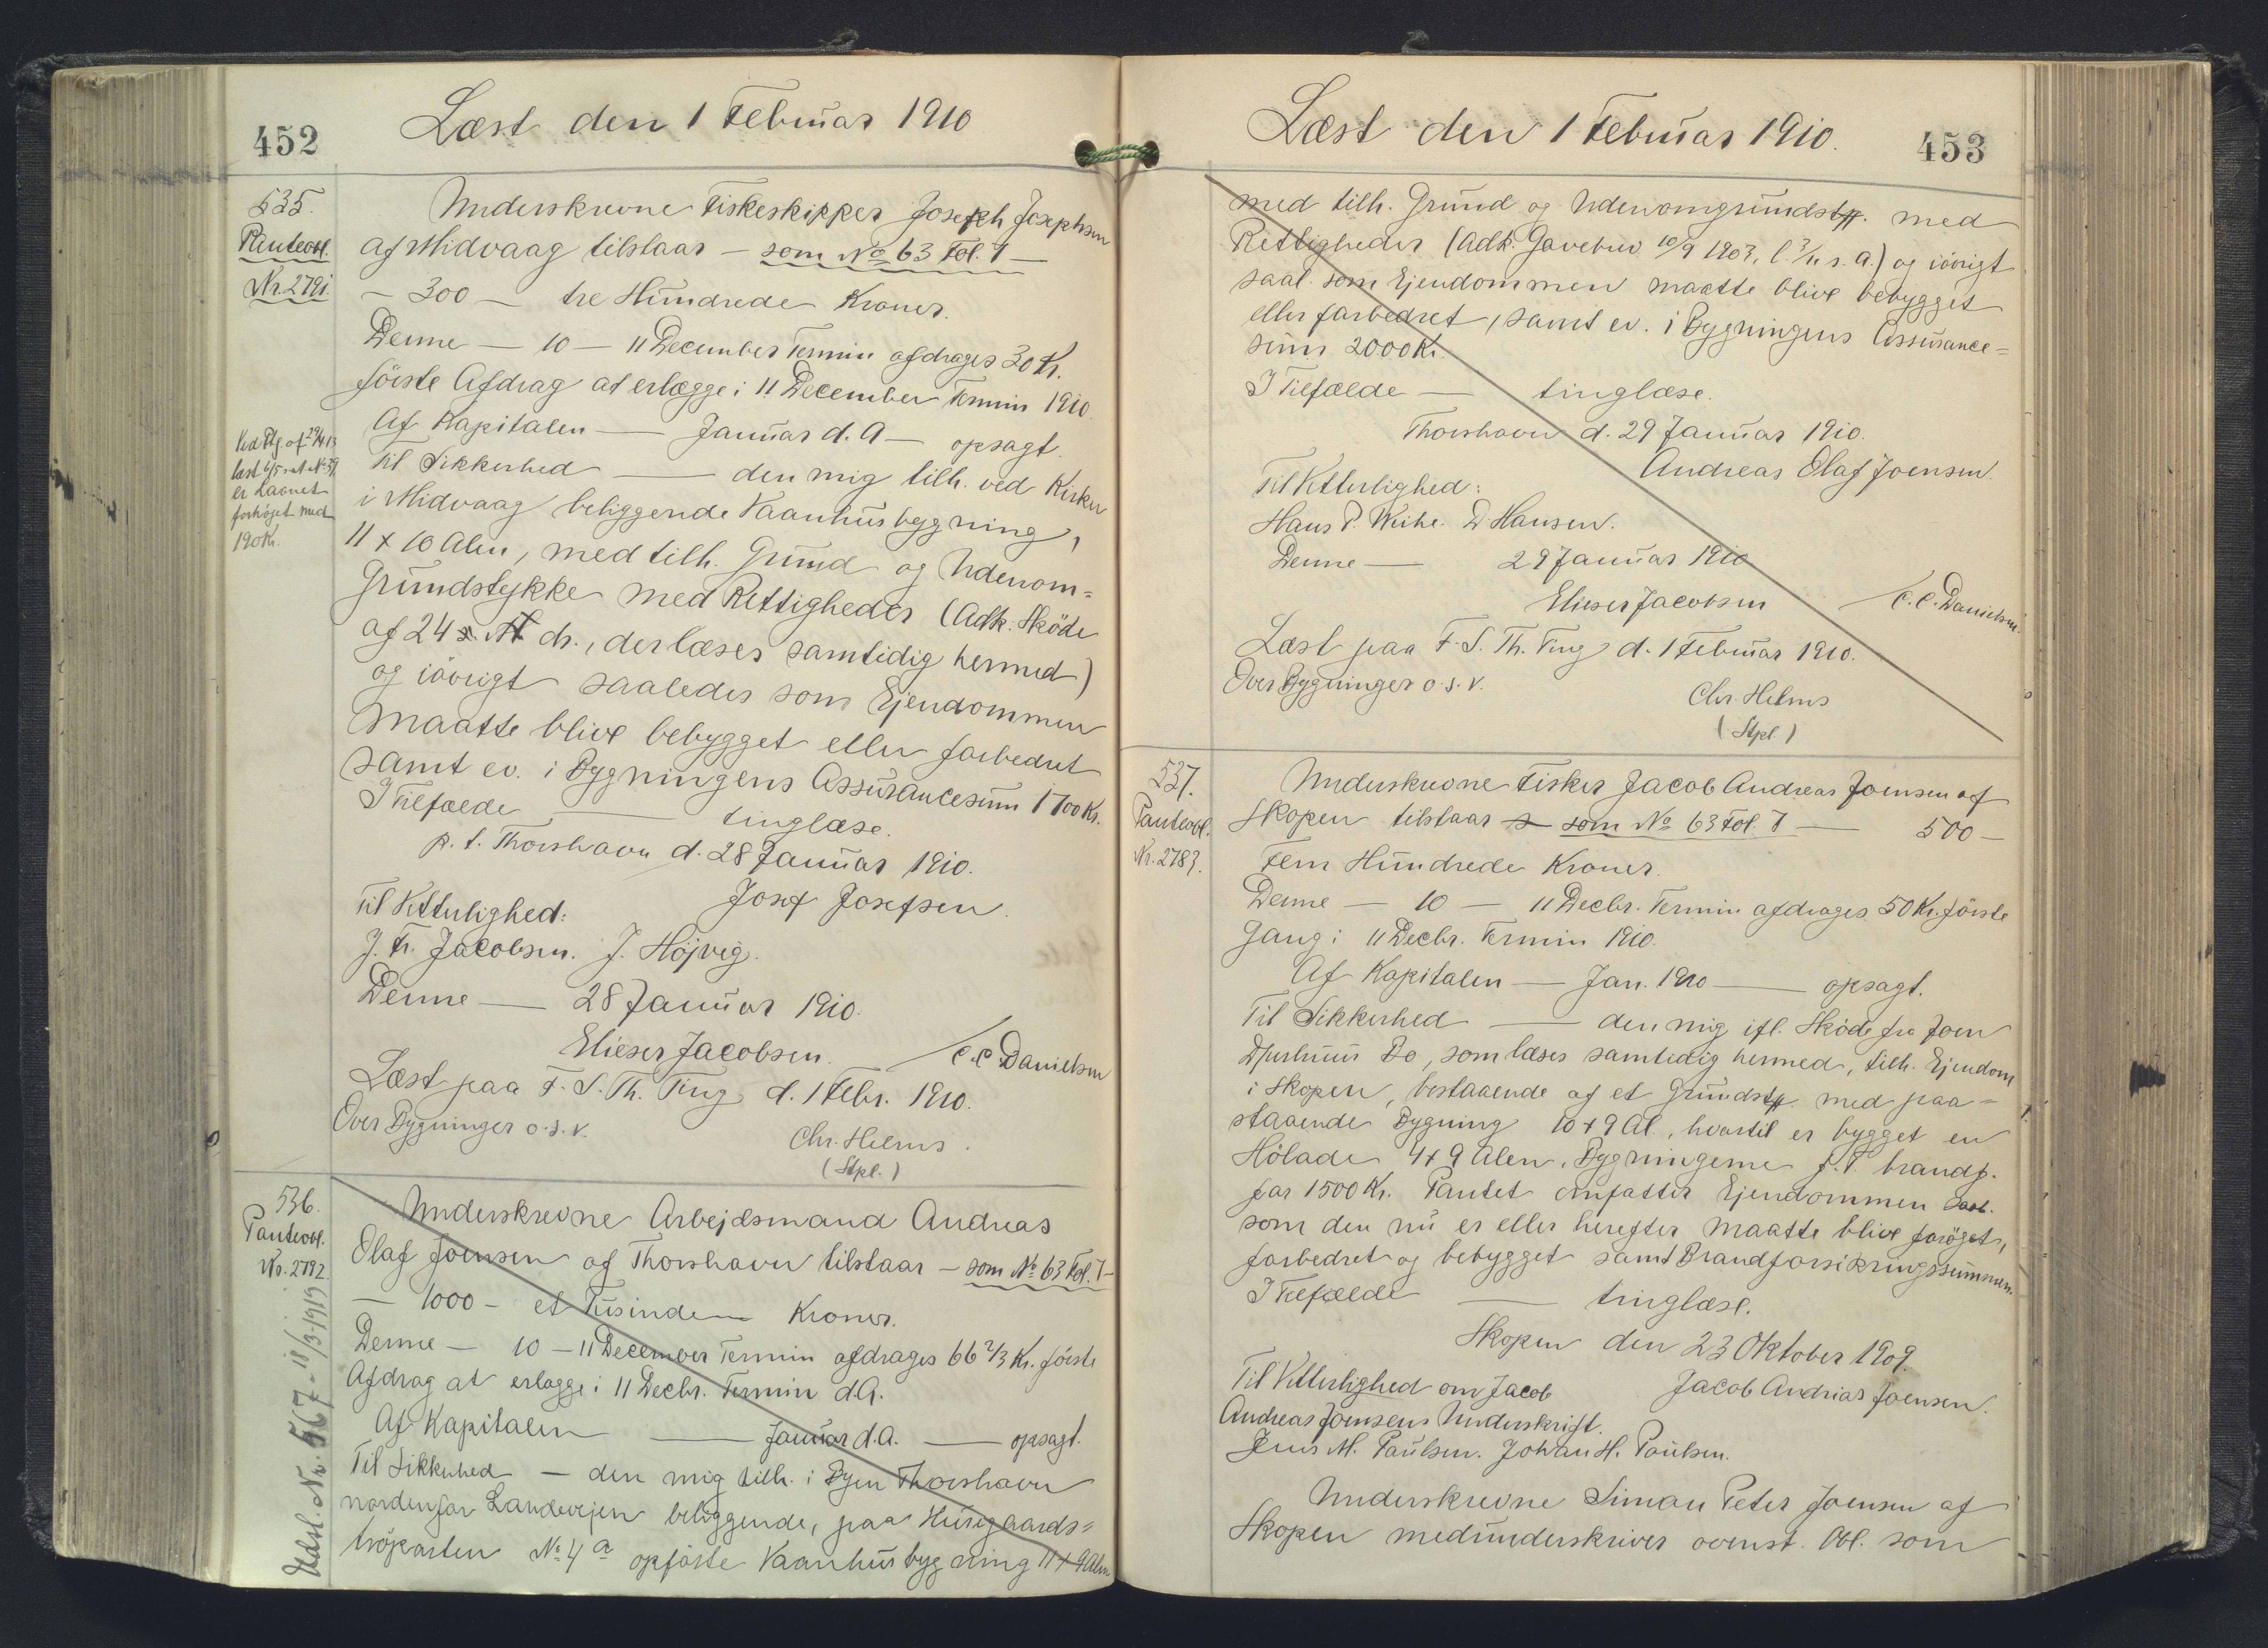 452
Læst den 1 Februar 1910
535.
Panteobl.
Nr. 2791
Underskrevne Fiskeskipper Joseph Josephsen
af Midvaag tilstaar – som No 63 Fol. 7 –
– 300 – tre Hundrede Kroner.
Denne – 10 – 11 December Termin afdrages 30 Kr.
förste Afdrag at erlægge i 11 December Termin 1910
Af Kapitalen — Januar d. A – opsagt.
Ved Ptg. af 29/4 13
læst 6/5 s. A. No 39
er Laanet
forhöjet med
190 Kr.
Til Sikkerhed — den mig tilh. ved Kirken
i Midvaag beliggende Vaanhusbygning,
11 x 10 Alen, med tilh. Grund og Udenom=
Grundstykke med Rettigheder (Adk. Sköde
af 24 ds., der læses samtidig hermed)
og iövrigt saaledes som Ejendommen
maatte blive bebygget eller forbedret
samt ev. i Bygningens Assurancesum 1700 Kr.
I Tilfælde — tinglæse.
p. t. Thorshavn d. 28 Januar 1910.
Josef Josefsen.
Til Vitterlighed:
J. Fr. Jacobsen. J. Höjvig.
Denne — 28 Januar 1910.
Elieser Jacobsen. / C. C. Danielsen
Læst paa F. S. Th. Ting d. 1 Febr. 1910.
Over Bygninger o. s. v.
Chr. Helms.
(Stpl.)
536.
Panteobl.
No. 2792.
Udsl. Nr. 567 - 18/3-1919
Underskrevne Arbejdsmand Andreas
Olaf Joensen af Thorshavn tilstaar – som No 63 Fol. 7 –
– 1000 – et Tusinde – Kroner.
Denne – 10 – 11 December Termin afdrages 66 2/3 Kr. förste
Afdrag at erlægge i 11 Decbr. Termin d.A.
Af Kapitalen — Januar d.A. — opsagt.
Til Sikkerhed – den mig tilh. i Byen Thorshavn
nordenfor Landevejen beliggende, paa Husegaards=
tröparten No 4 a opförte Vaanhusbygning 11 x 9 Alen
Læst den 1 Februar 1910.
453
med tilh. Grund og Udenomgrundstk. med
Rettigheder (Adk. Gavebrev 10/9 1903, l. 3/11 s. A.) og iövrigt
saal. som Ejendommen maatte blive bebygget
eller forbedret, samt ev. i Bygningens Assurance=
sum 2000 Kr.
I Tilfælde — tinglæse.
Thorshavn d. 29 Januar 1910.
Andreas Olaf Joensen.
Til Vitterlighed:
Hans P. Weihe. D Hansen.
Denne — 29 Januar 1910
Elieser Jacobsen / C. C. Danielsen.
Læst paa F. S. Th. Ting d. 1 Februar 1910.
Over Bygninger o. s. v.
Chr Helms
(Stpl.)
537.
Panteobl.
Nr. 2783.
Underskrevne Fisker Jacob Andreas Joensen af
Skopen tilstaar – som No 63 Fol. 7 — 500 –
Fem Hundrede Kroner.
Denne – 10 – 11 Decbr. Termin afdrages 50 Kr. förste
Gang i 11 Decbr. Termin 1910.
Af Kapitalen — Jan. 1910 — opsagt.
Til Sikkerhed — den mig ifl. Sköde fra Joen
Djurhuus Bo, som læses samtidig hermed, tilh. Ejendom
i Skopen, bestaaende af et Grundstk. med paa=
staaende Bygning 10 x 9 Al., hvortil er bygget en
Hölade 4 x 9 Alen. Bygningerne f. T. brandf.
for 1500 Kr. Pantet omfatter Ejendommen saal.
som den nu er eller herefter maatte blive foröget,
forbedret og bebygget samt Brandforsikringssummen.
I Tilfælde — tinglæse.
Skopen den 23 Oktober 1909.
Jacob Andrias Joensen.
Til Vitterlighed om Jacob
Andreas Joensens Underskrift.
Jens M. Paulsen. Johan H. Poulsen.
Underskrevne Simon Peter Joensen af
Skopen medunderskriver ovenst. Obl. som